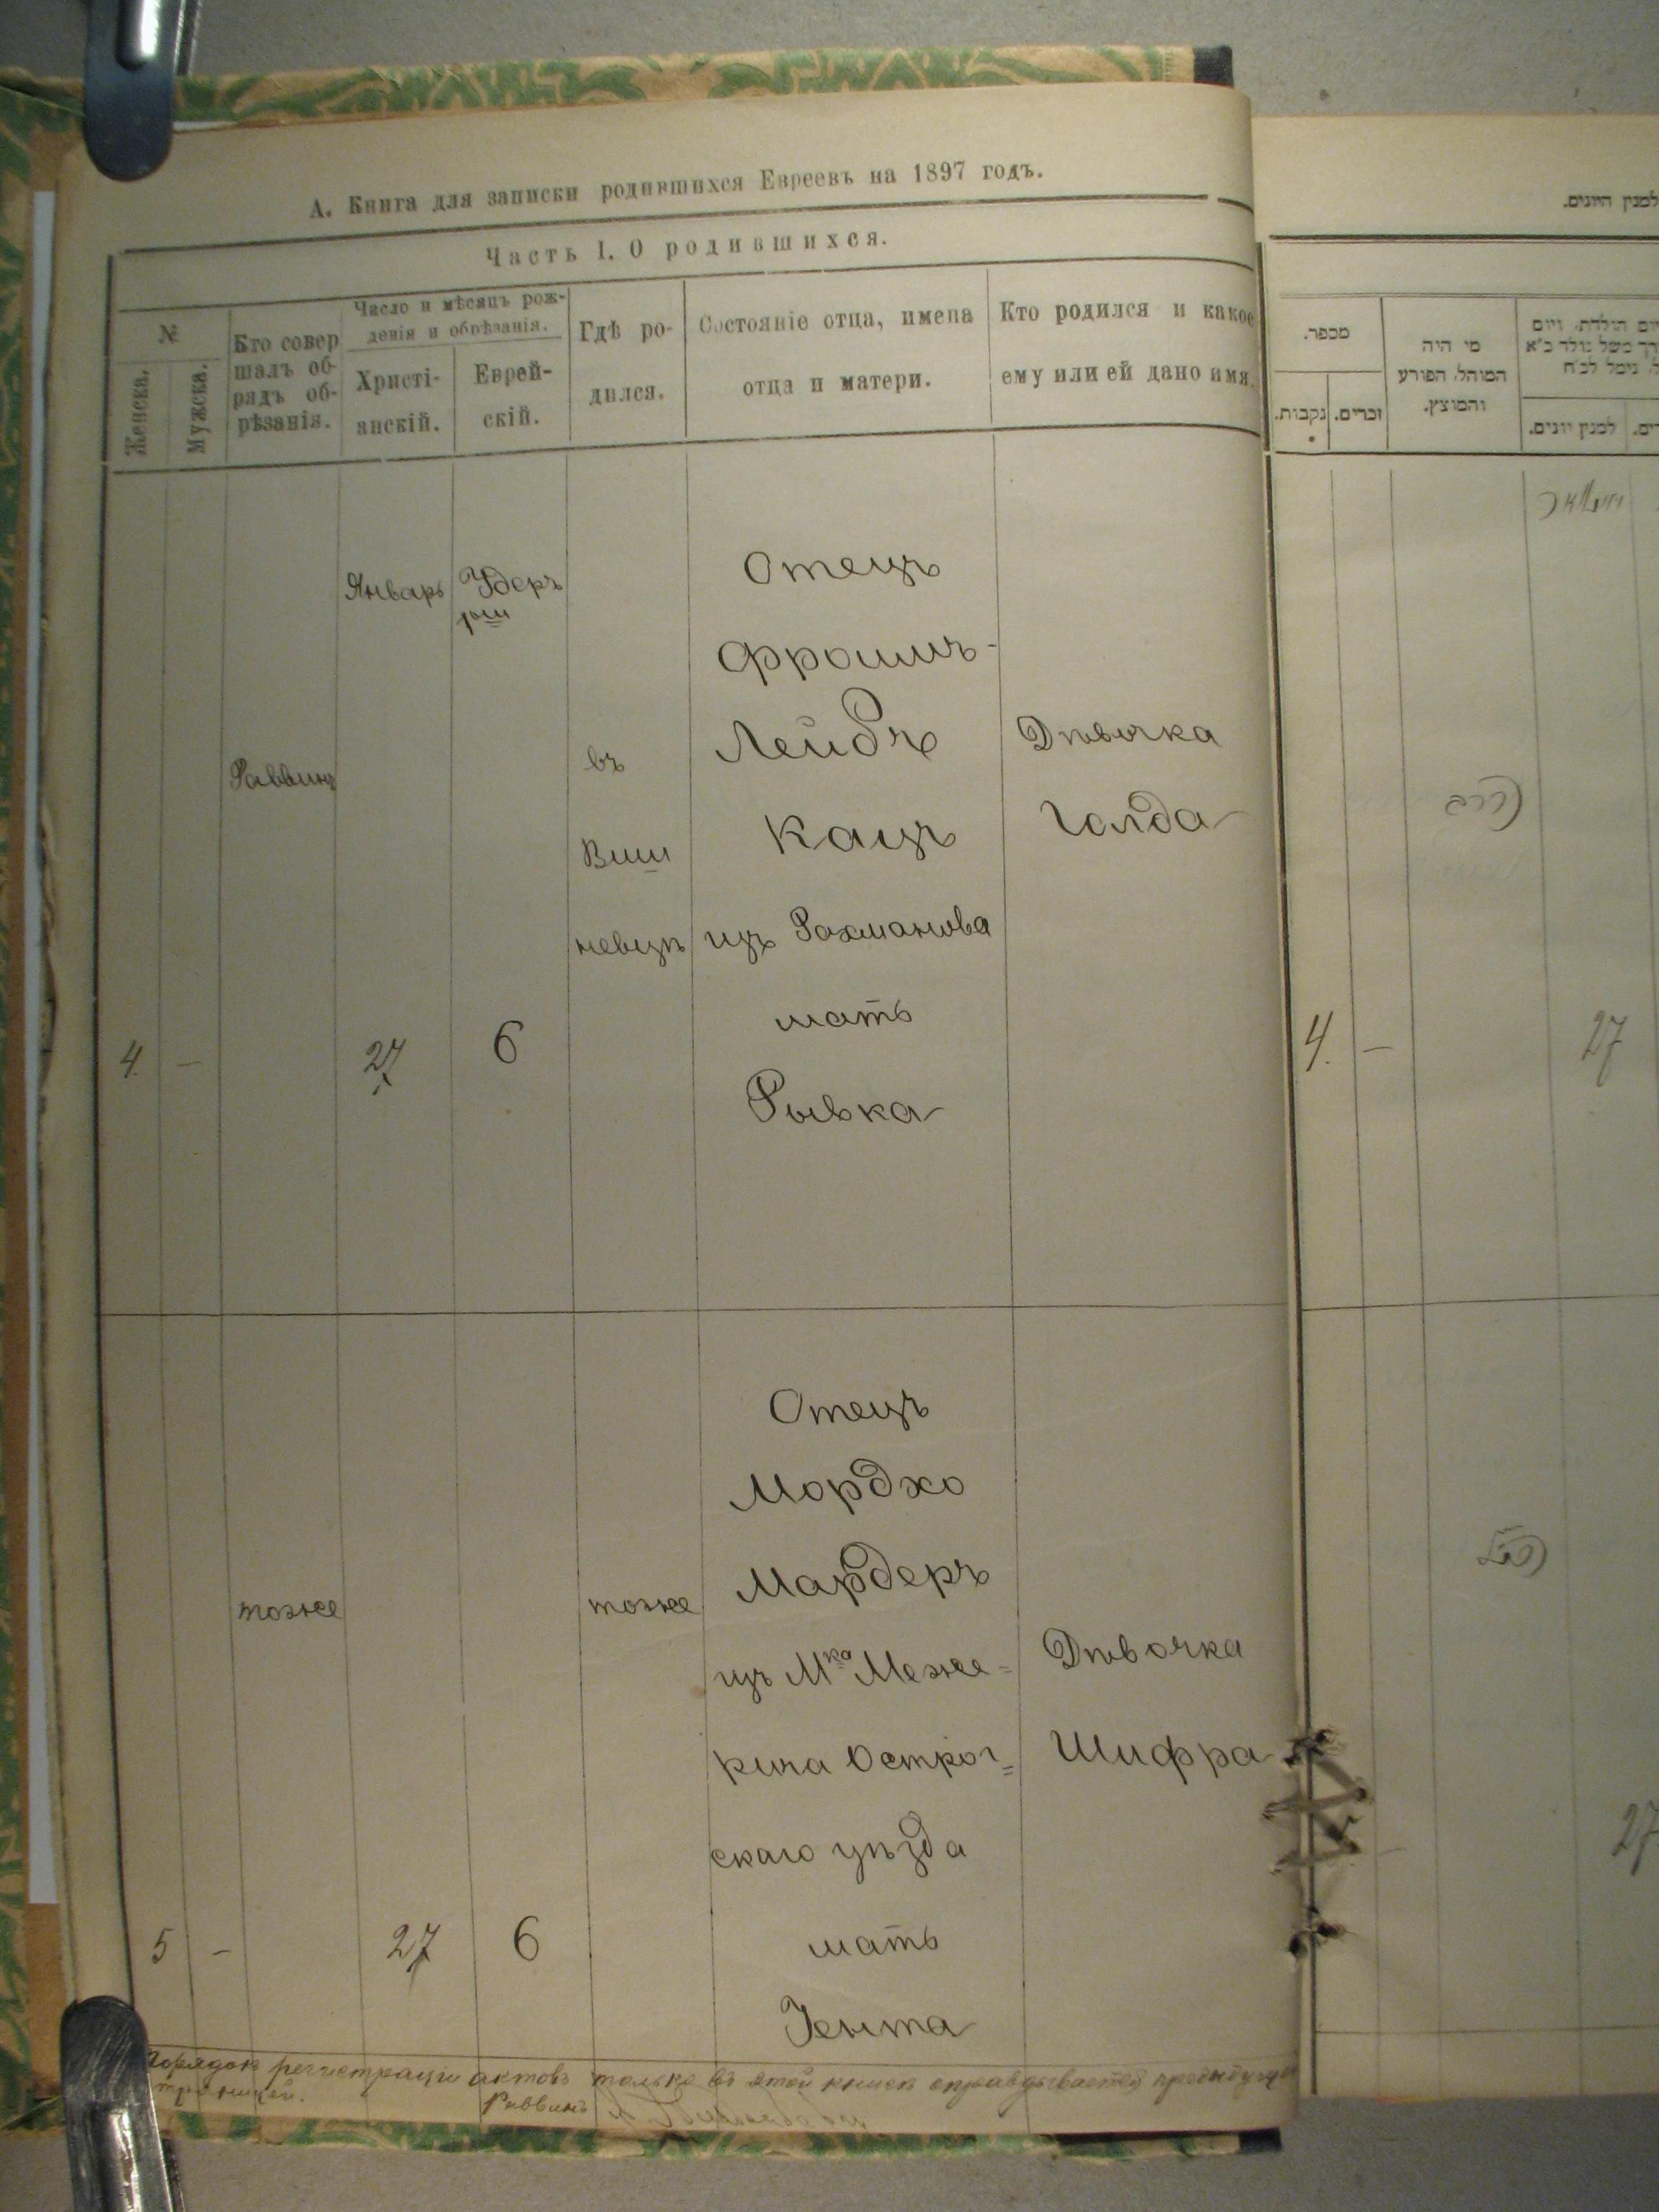 А. Книга для записки родившихся Евреевъ на 1897 годъ.
Часть I. О родившихся.
№
Женска.
Мужска.
Кто совер
шалъ об-
рядъ об-
рѣзанія.
Число и мѣсяцъ рож-
денія и обрѣзанія.
Христі-
анскій.
Еврей-
скій.
Гдѣ ро-
дился.
Состояніе отца, имена
отца и матери.
Кто родился и какое
ему или ей дано имя.
4.
-
Раввинъ
Январь
27
Удеръ
6
въ
Виш
невцѣ
Отецъ
Фроимъ-
Лейбъ
Кацъ
изъ Рохманова
мать
Рывка
Дѣвочка
Голда
5
-
тоже
27
6
тоже
Отецъ
Мордхо
Мардеръ
изъ М-ка Меже-
рича Острог=
скаго уѣзда
мать
Іента
Дѣвочка
Шифра
Порядокъ регистраціи актовъ только въ этой книгѣ оправдывается предыдущей
страницей.
Раввинъ
למנין היונים.
מספר.
נקבות.
זכרים.
מי היה
המוהל, הפורע
והמוצץ.
למנין יונים.
4.
-
27
27